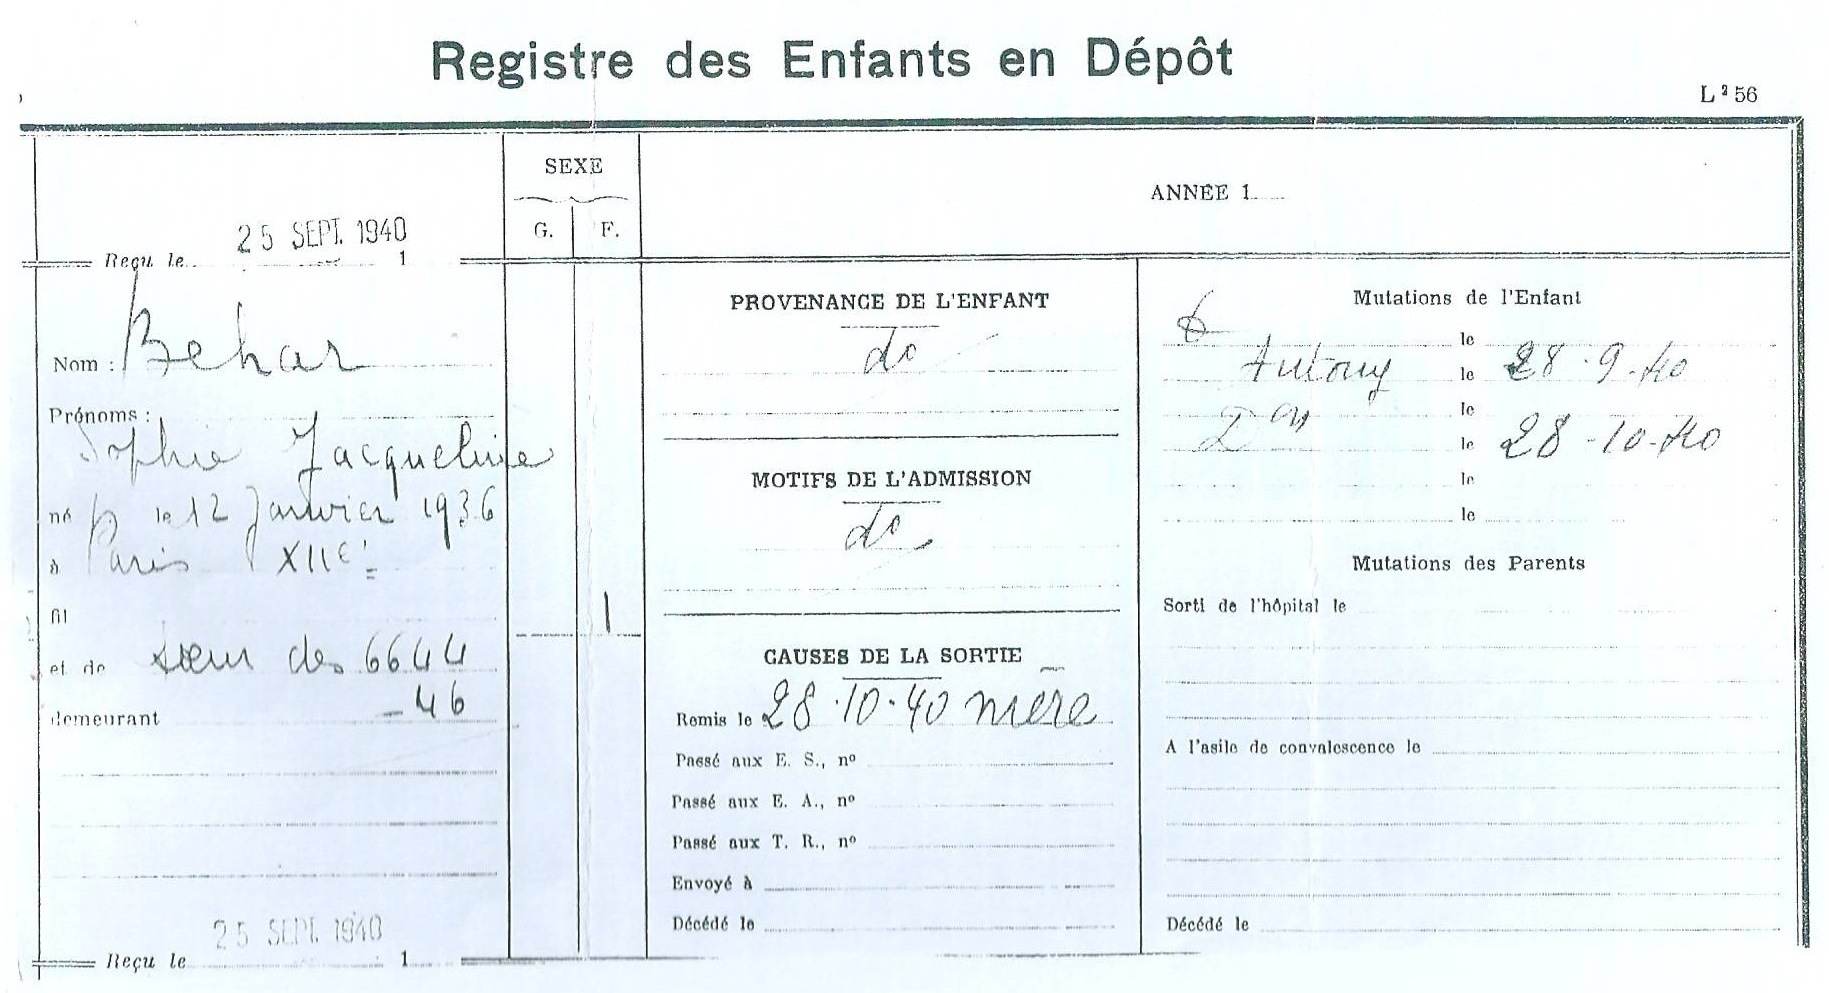 Registre des Enfants en Dépôt
L² 56
SEXE
G. F.
ANNÉE 1
25 SEPT. 1940
Reçu le 1
Nom : Behar
Prénoms :
Sophie Jacqueline
né le 12 Janvier 1936
à Paris XIIe
fil
1
et de sœur des 6644
demeurant -46
PROVENANCE DE L'ENFANT
do
MOTIFS DE L'ADMISSION
do
CAUSES DE LA SORTIE
Remis le 28.10.40 mère
Passé aux E. S., nº
Passé aux E. A., nº
Passé aux T. R., nº
Envoyé à
Décédé le
Mutations de l'Enfant
le
Antony le 28.9.40
le
le 28-10-40
le
le
Mutations des Parents
Sorti de l'hôpital le
A l'asile de convalescence le
Décédé le
25 SEPT. 1940
Reçu le 1